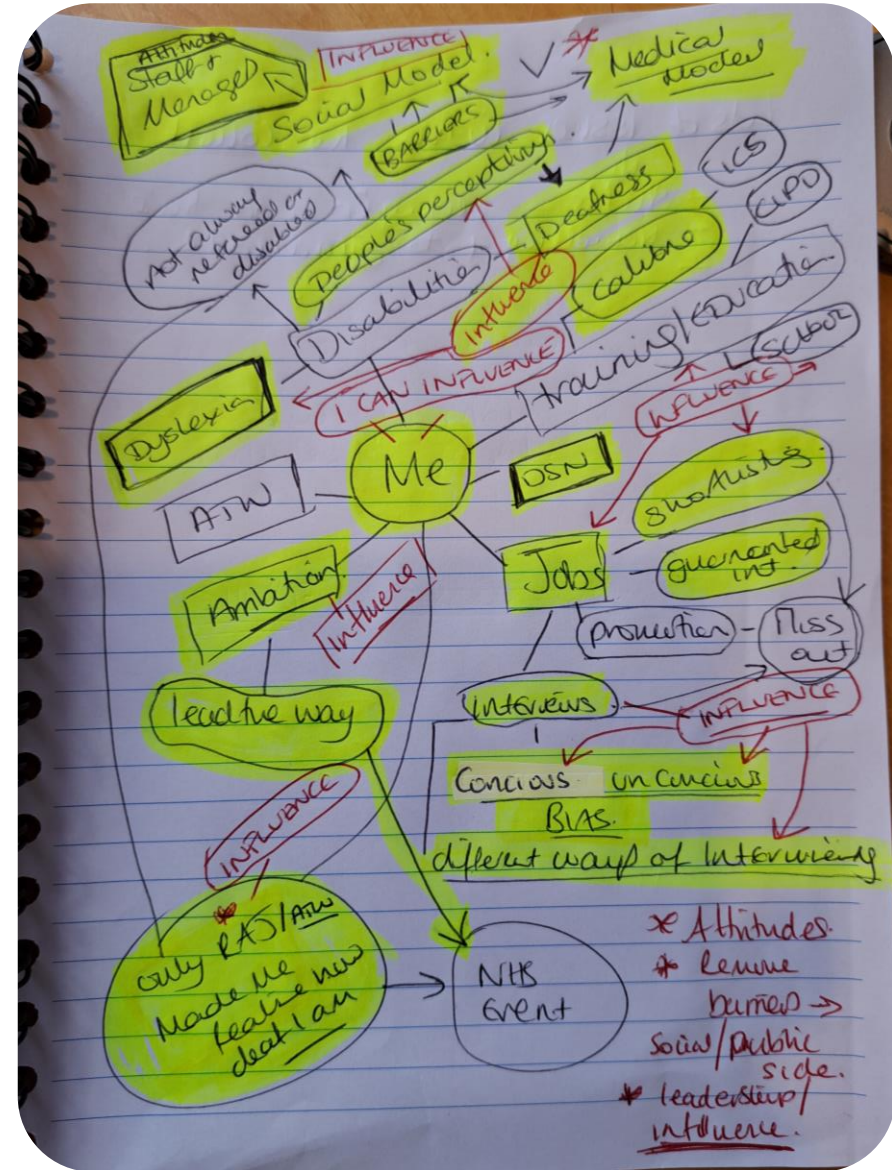 Attitudes
Staff +
Manager
INFLUENCE
Social Model.
Medical
Model
BARRIERS
People's perceptions
Deafness
ICS
CIPD
Not always
referred
disabled
Disabilities
Influence
Calibre
training/education
SCHOOL
I CAN INFLUENCE
INFLUENCE
Dyslexia
Me
DSN
ATW
shortlisting
Ambition
Influence
Jobs
guaranteed
int.
promotion
Miss
out
lead the way
Interviews
INFLUENCE
Concious
unConcious
BIAS.
different ways of Interviewing
INFLUENCE
only RAJ/ATW
Made Me
realise how
deaf I am
NHS
Event
* Attitudes.
* Remove
barriers →
social/public
side.
* leadership/
influence.